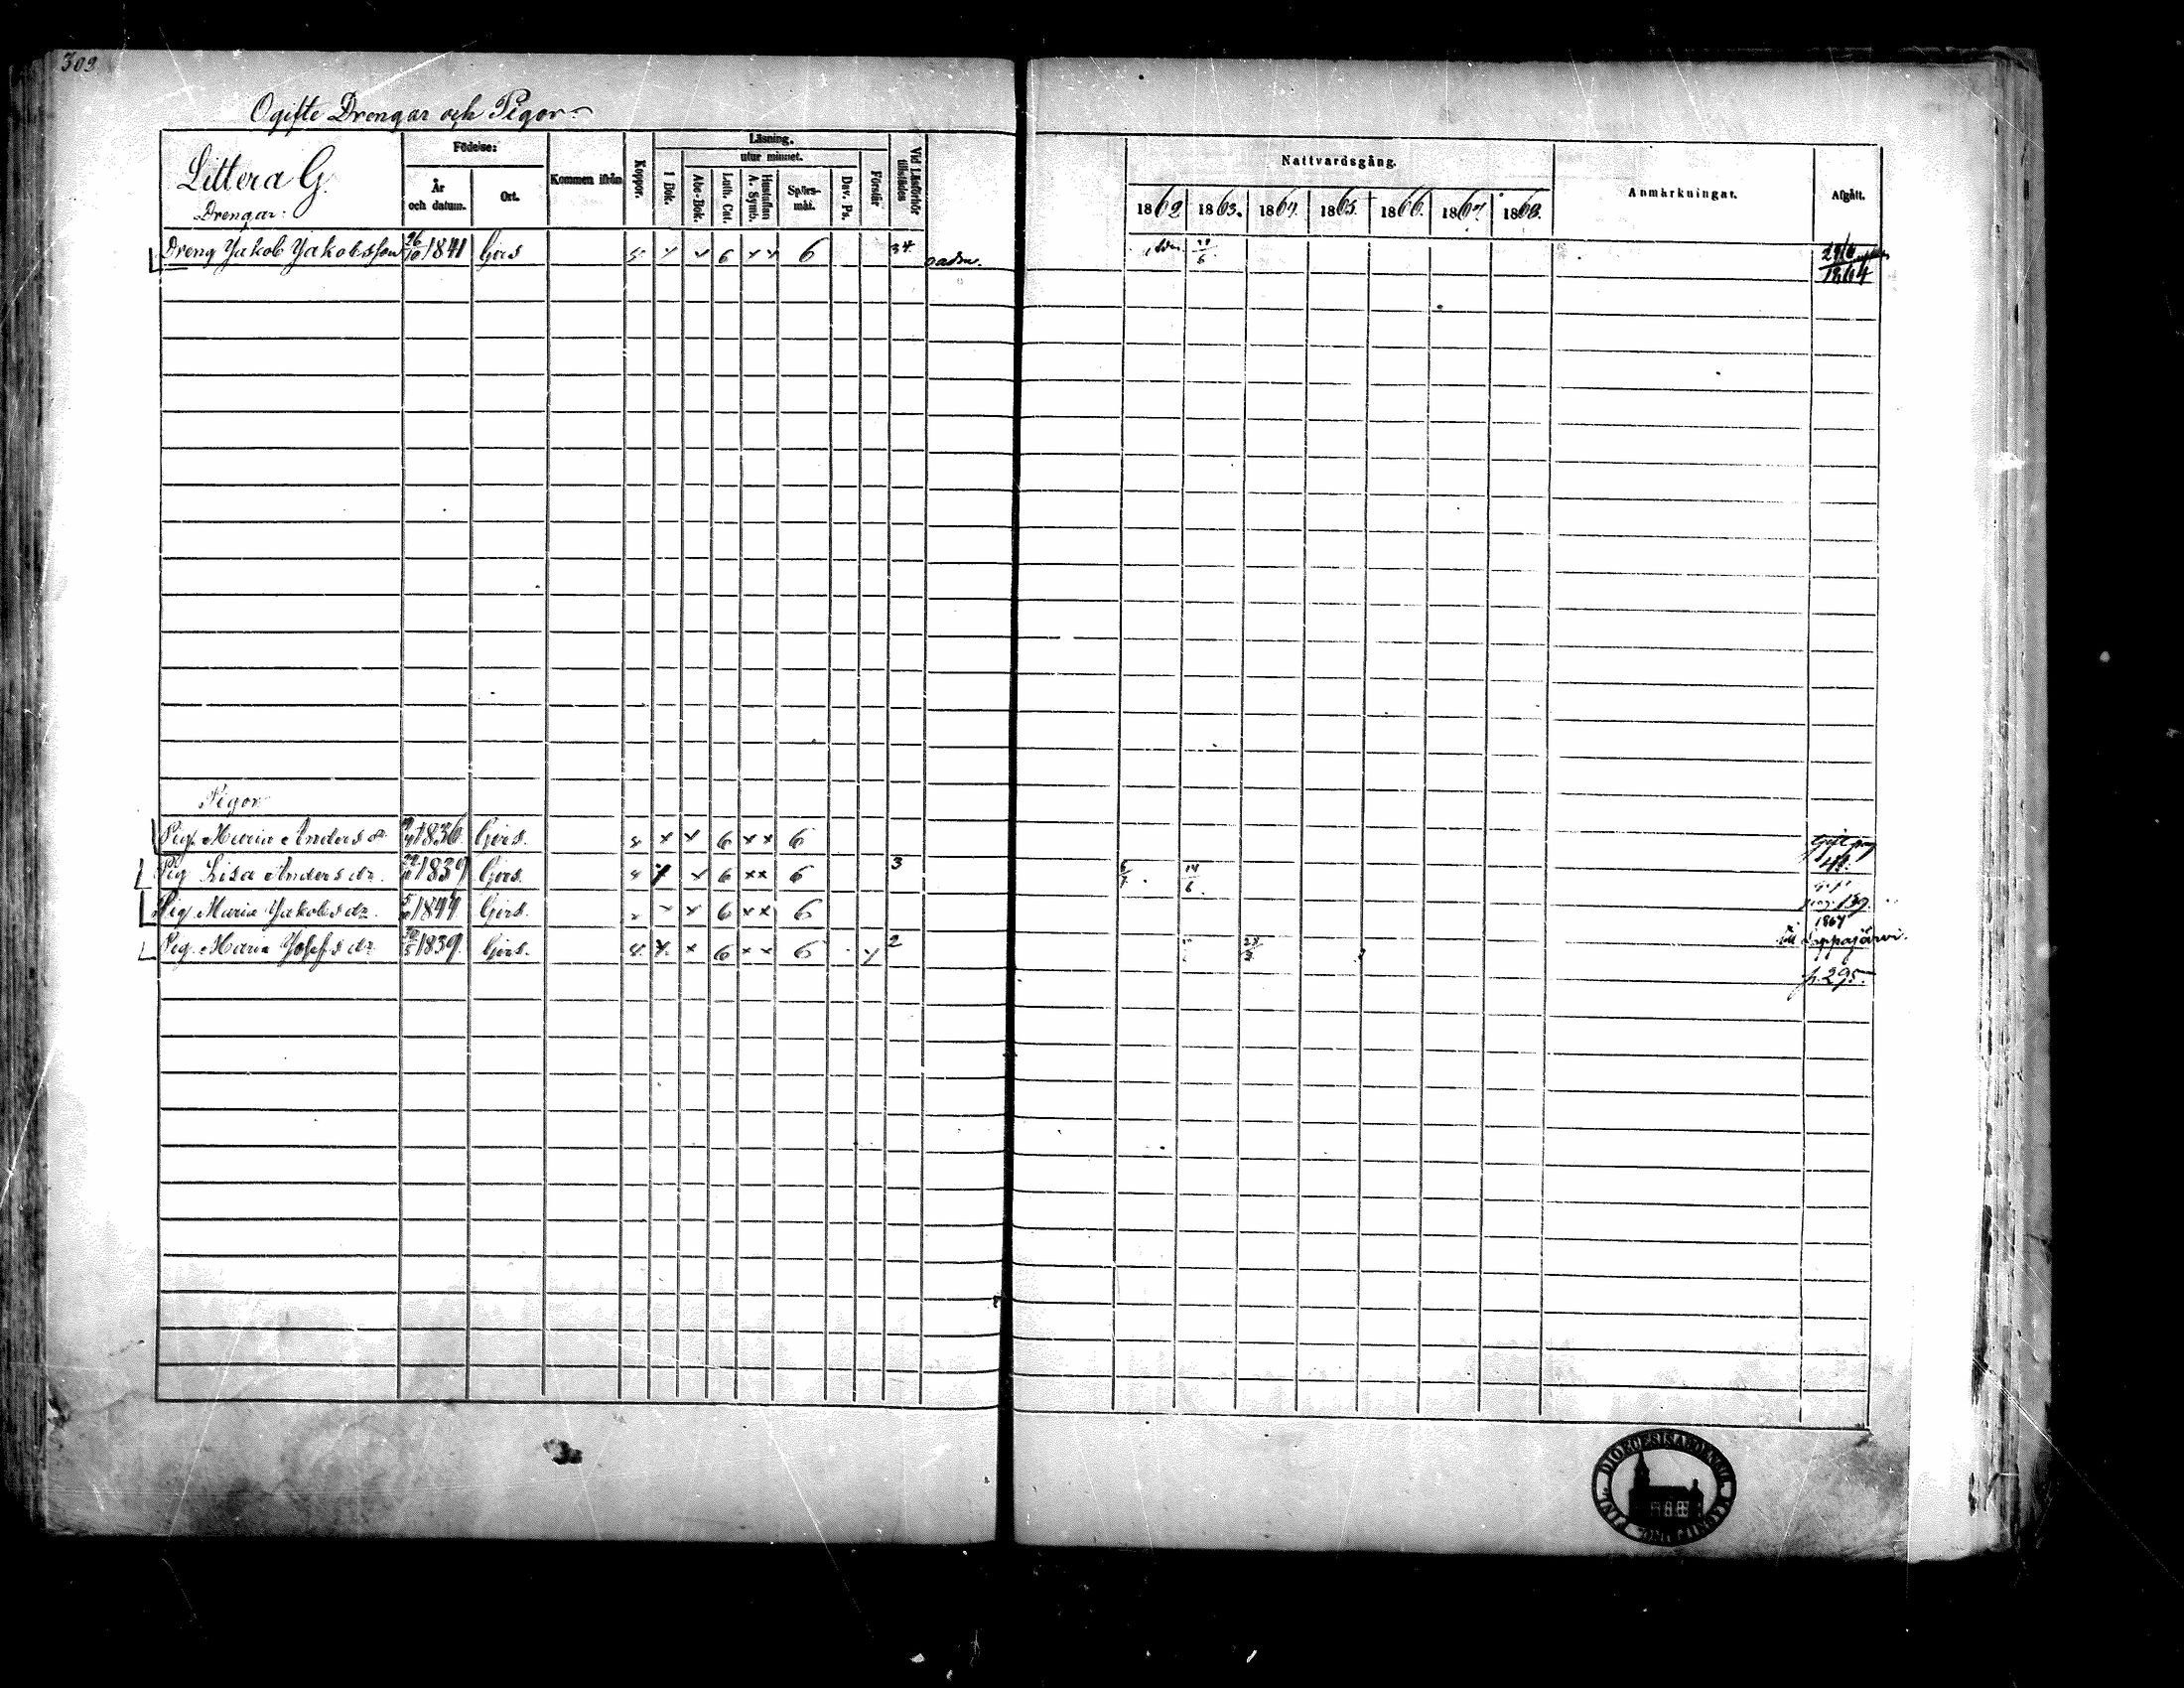 309
Ogifte Drengar och Pigor
Littera G.
Drengar:
Födelse:
År och datum.
Ort.
Kommen ifrån
Koppor.
Läsning.
utur minnet.
I Bok.
Abc-Bok.
Luth. Cat.
Hustaflan A. Symb.
Spörs-mål.
Dav. Ps.
Förstår
Vid Läsförhör tillstädes
Nattvardsgång.
1862. 1863. 1864. 1865. 1866. 1867. 1868.
Anmärkningar.
Afgått.
Dreng Jakob Jakobsson 26/10 1841 Gers 6 6 34
1864
Pigor
Pig. Maria Anders dr 1836 Gers. 6 6 Gift pag
Pig Lisa Anders dr. 1839 Gers. 6 6 3 14/6
Pig. Maria Jakobs dr. Gers. 6 6 139.
Pig. Maria Josefs dr 1839. Gers. 6 6 2 1864 till Lappajärvi.
p. 295.